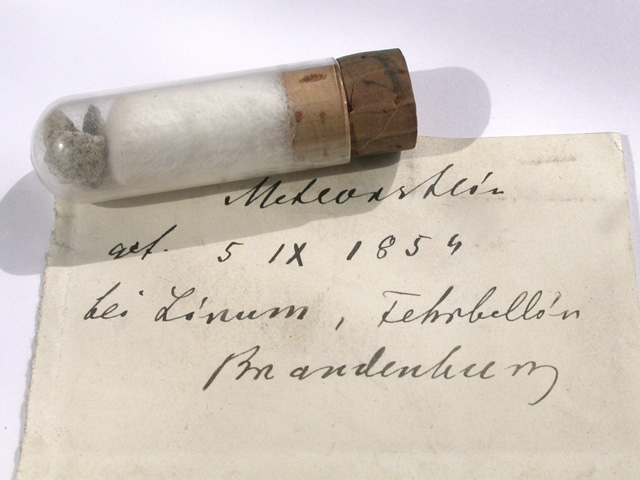 Meteorstein
gef. 5 IX 1854
bei Linum, Fehrbellin
Brandenburg